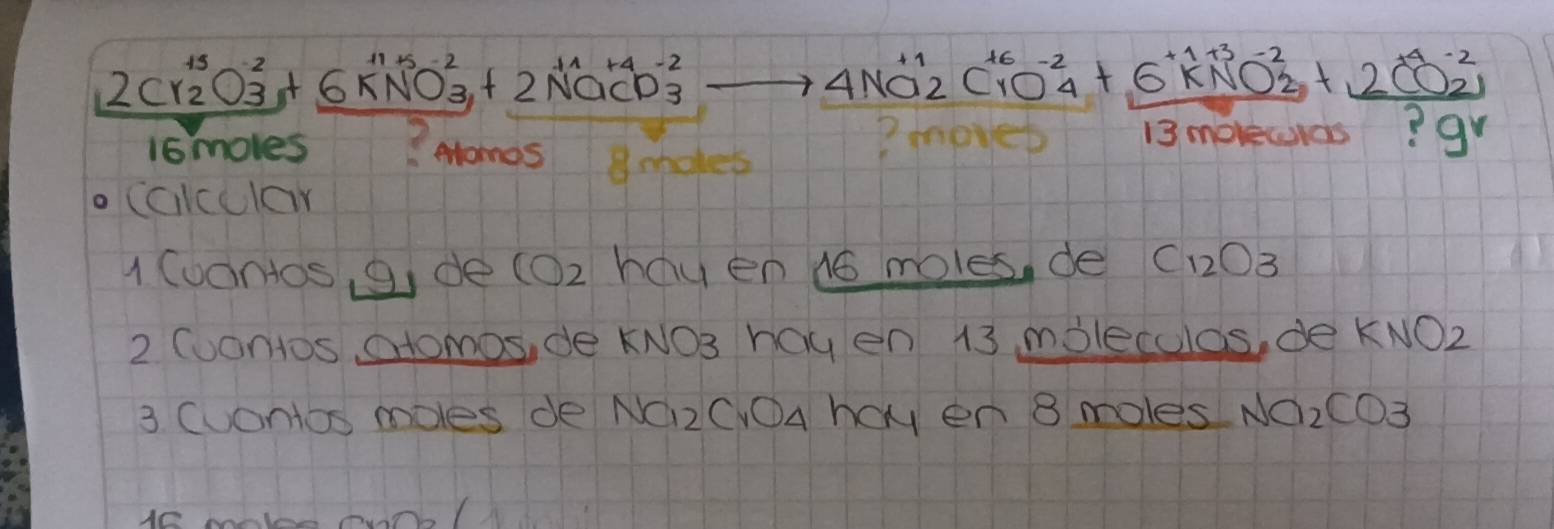 +3 -2 +1 +5 -2 +1 +4 -2 +1 +6 -2 +1 +3 -2 +4 -2
2Cr2O3 + 6KNO3 + 2NaCO3 → 4Na2CrO4 + 6KNO2 + 2CO2
16 moles ? Atomos 8 moles ? moles 13 moleculas ? gr
• Calcular
1 Cuantos g de CO2 hay en 16 moles de Cr2O3
2 Cuantos atomos de KNO3 hay en 13 móleculas de KNO2
3 Cuantos moles de Na2CrO4 hay en 8 moles Na2CO3
16 moles